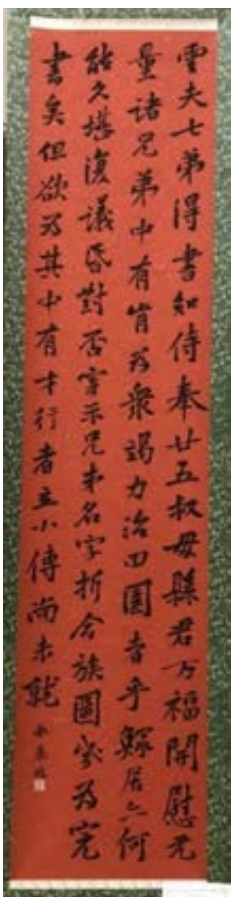 雲夫七弟得書知侍奉廿五叔母縣君万福開慰无
量諸兄弟中有肯為衆竭力治田園者乎鰥居六何
能久堪復議昏對否寄示兄弟名字析合族圖甚為完
書矣但欲為其中有才行者立小傳尚未就